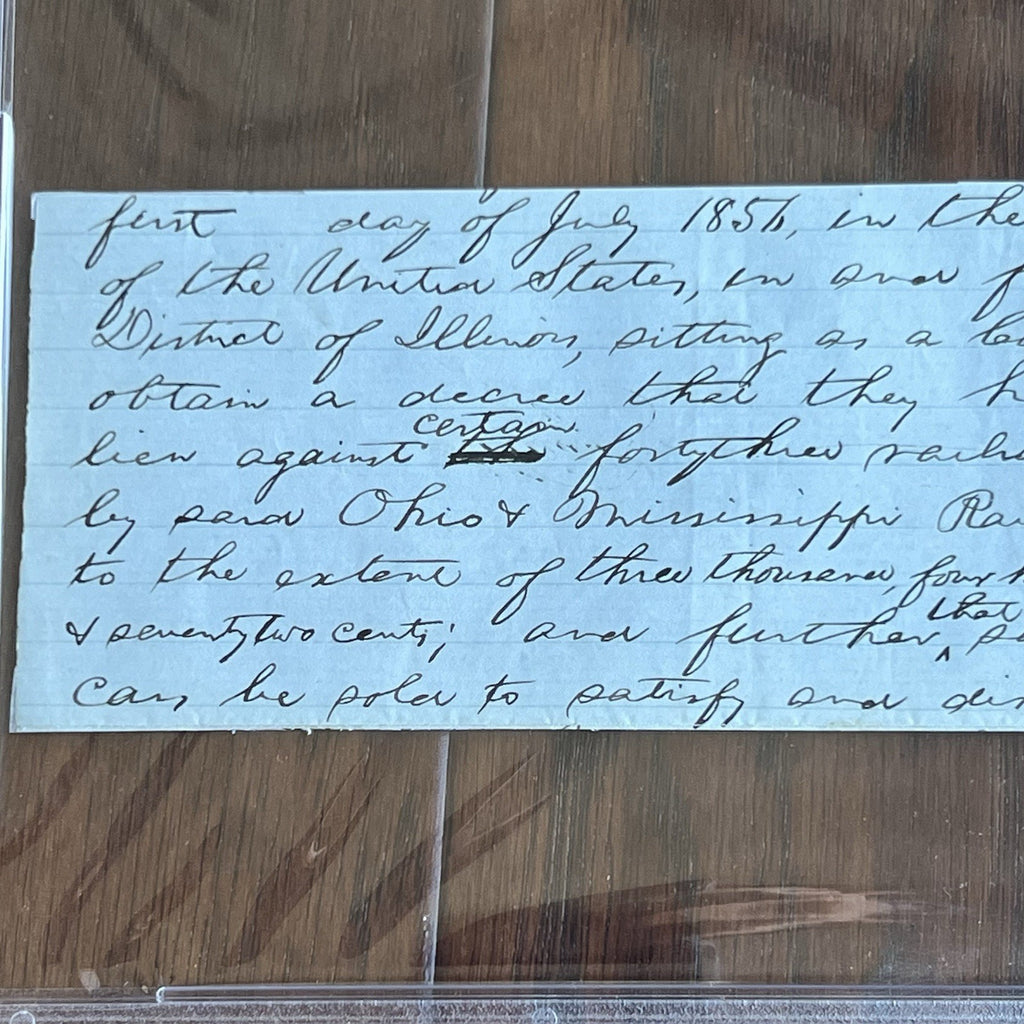 first day of July 1856, in the
of the United States, in and f
District of Illinois, sitting as a
obtain a decree that they h
certain
lien against fortythree railr
by said Ohio & Mississippi Rai
to the extent of three thousand, four h
that
& seventytwo cents; and further, sa
cars be sold to satisfy and dis